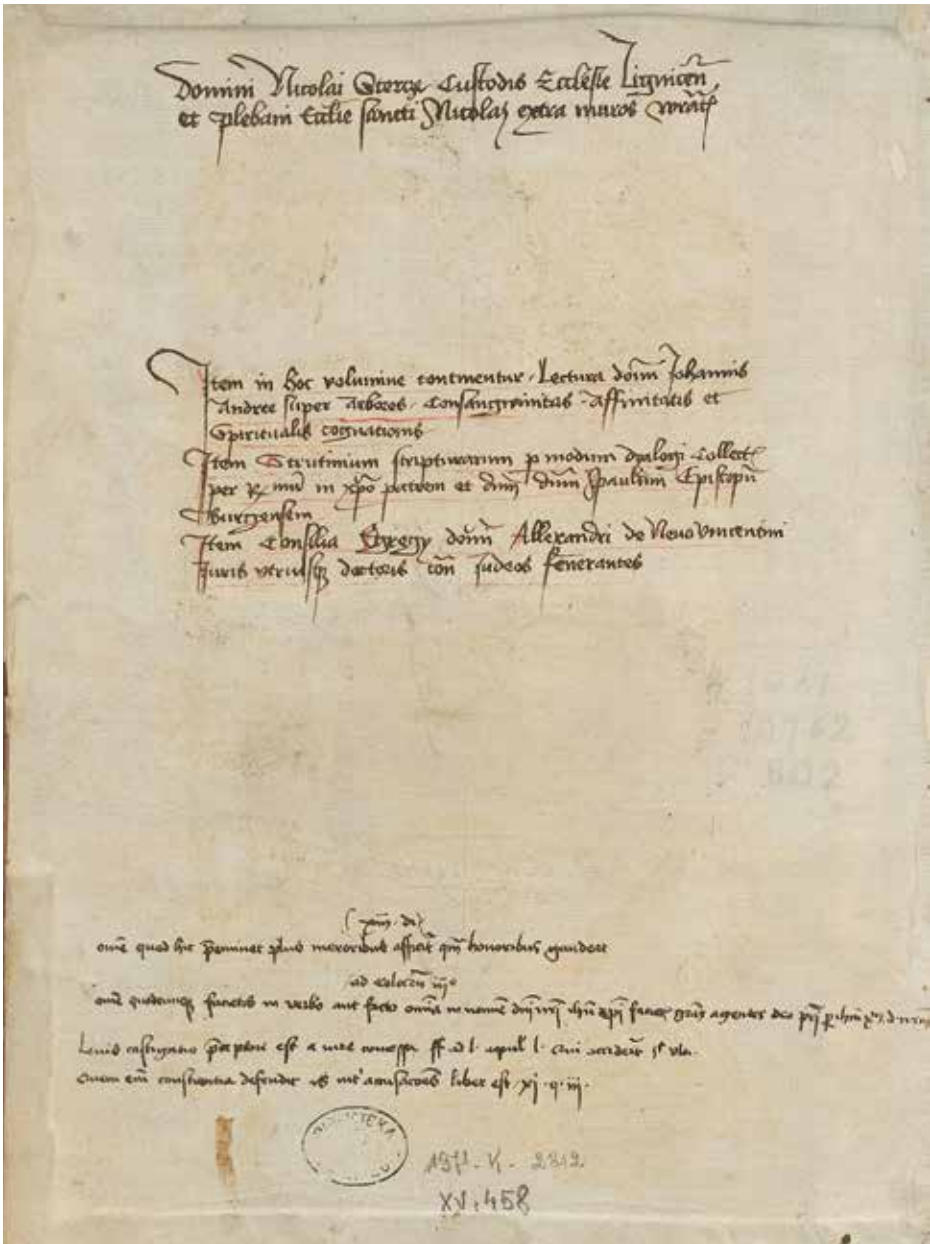 Domini Nicolai Stercze Custodis Ecclesie Lignicen̄
et plebani Ecclīe sancti Nicolaj extra muros wrat̄
Item in hoc volumine continentur Lectura domī Johannis
Andree super Arbores · Consangwinitatis · Affinitatis et
Spiritualis cognationis
Item Scrutinium scripturarum p modum dyalogi collect
per R mū in xp̄o patrem et dn̄m dn̄m Paulum Episcopū
Burgensem
Item Consilia Egregij domī Allexandri de Nevo vincentini
Juris vtriusq̨ doctoris con̄ judeos fenerantes
om̄e quod hic p̄eminet plus meroribus afficit qm̄ honoribus gaudeat
ad coloceñ iij°
om̄e quodcumq̨ facitis in verbo aut facto om̄ia in nomine dn̄i nr̄i ihū xp̄i facite grās agentes deo
Levis castigatio est a iure concessa ff ad l · aquil l ·
Quem em̄ conscientia defendit is int' accusatores liber est · xj · q · iij ·
BIBLIOTEKA
1971 - K - 2312
XV. 458